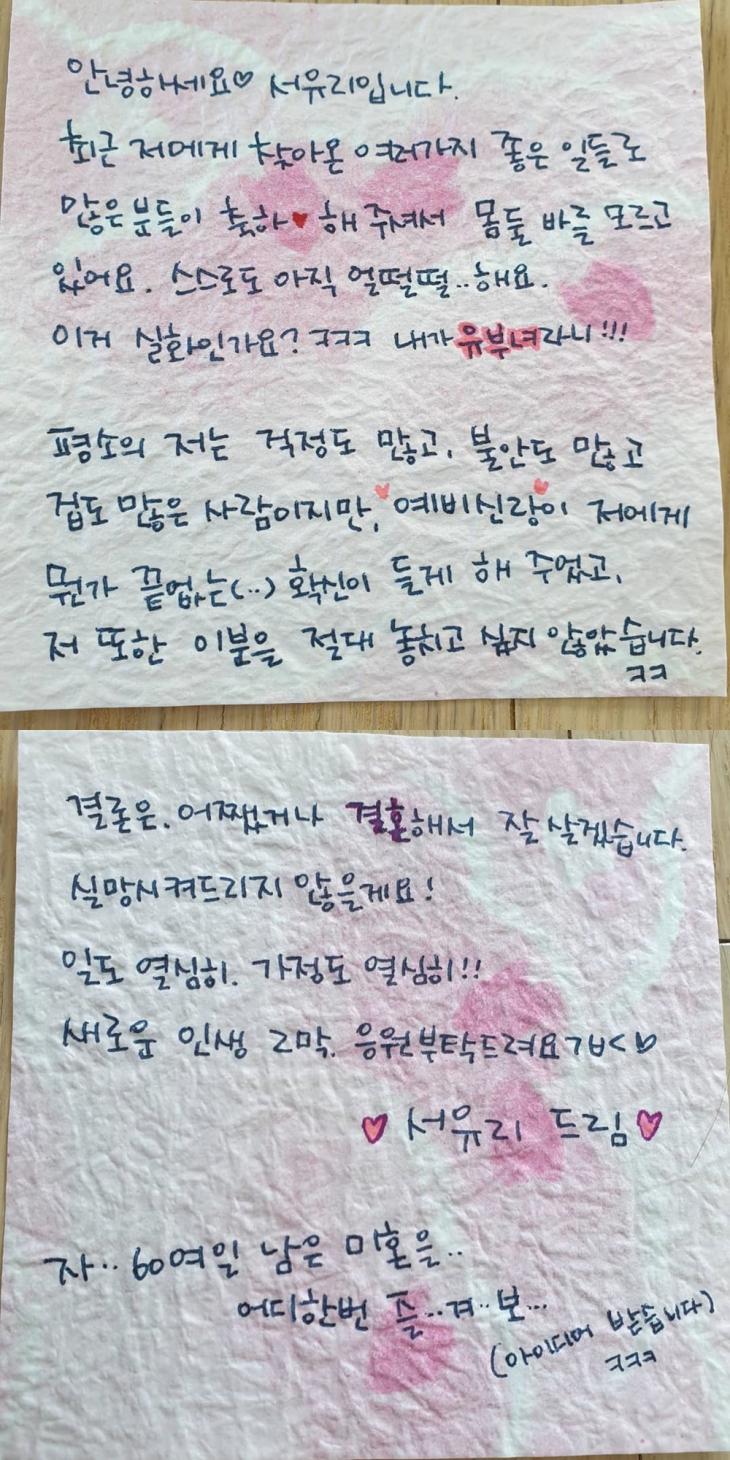 안녕하세요♡ 서유리입니다.
최근 저에게 찾아온 여러가지 좋은 일들로
많은분들이 축하♥해 주셔서 몸둘 바를 모르고
있어요. 스스로도 아직 얼떨떨..해요.
이거 실화인가요? ㅋㅋㅋ 내가 유부녀라니!!!
평소의 저는 걱정도 많고, 불안도 많고
겁도 많은 사람이지만, 예비신랑이 저에게
뭔가 끝없는(..) 확신이 들게 해 주었고,
저 또한 이분을 절대 놓치고 싶지 않았습니다.
ㅋㅋ
결론은. 어쨌거나 결혼해서 잘 살겠습니다.
실망시켜드리지 않을게요!
일도 열심히. 가정도 열심히!!
새로운 인생 2막. 응원부탁드려요 >ㅂ<♡
♥ 서유리 드림♥
자.. 60여일 남은 미혼을..
어디한번 즐...겨..보...
(아이디어 받습니다)
ㅋㅋㅋ